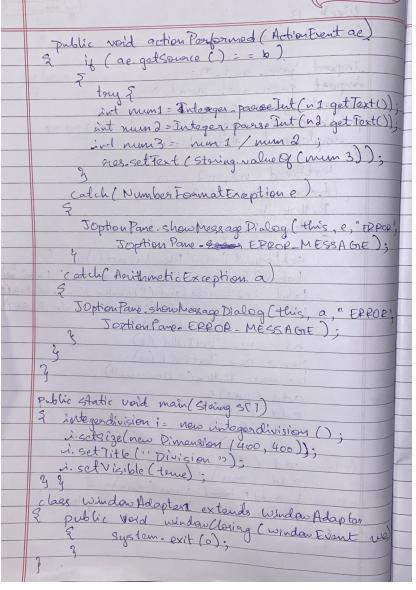 public void actionPerformed (ActionEvent ae)
{ if ( ae.getSource () = = b )
{
try {
int num1 = Integer.parseInt(n1.getText());
int num2 = Integer.parseInt(n2.getText());
int num3 = num1 / num2 ;
res.setText (String.valueOf (num3));
}
catch( NumberFormatException e )
{
JOptionPane.showMessageDialog( this, e, "ERROR",
JOptionPane. ERROR_MESSAGE );
}
catch( ArithmeticException a)
{
JOptionPane.showMessageDialog (this, a, "ERROR",
JOptionPane. ERROR_MESSAGE );
}
}
}
public static void main(String s[])
{ integerdivision i = new integerdivision ();
i.setsize(new Dimension (400, 400));
i.setTitle ("Division ");
i.setVisible (true) ;
} }
class WindowAdapter1 extends WindowAdapter
{ public void windowClosing ( windowEvent we)
{
System.exit (0);
}
}